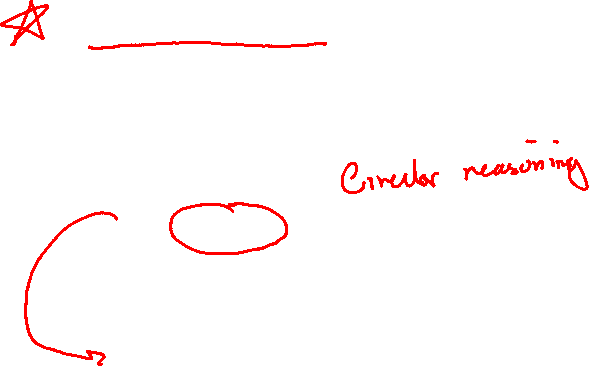 Circular reasoning